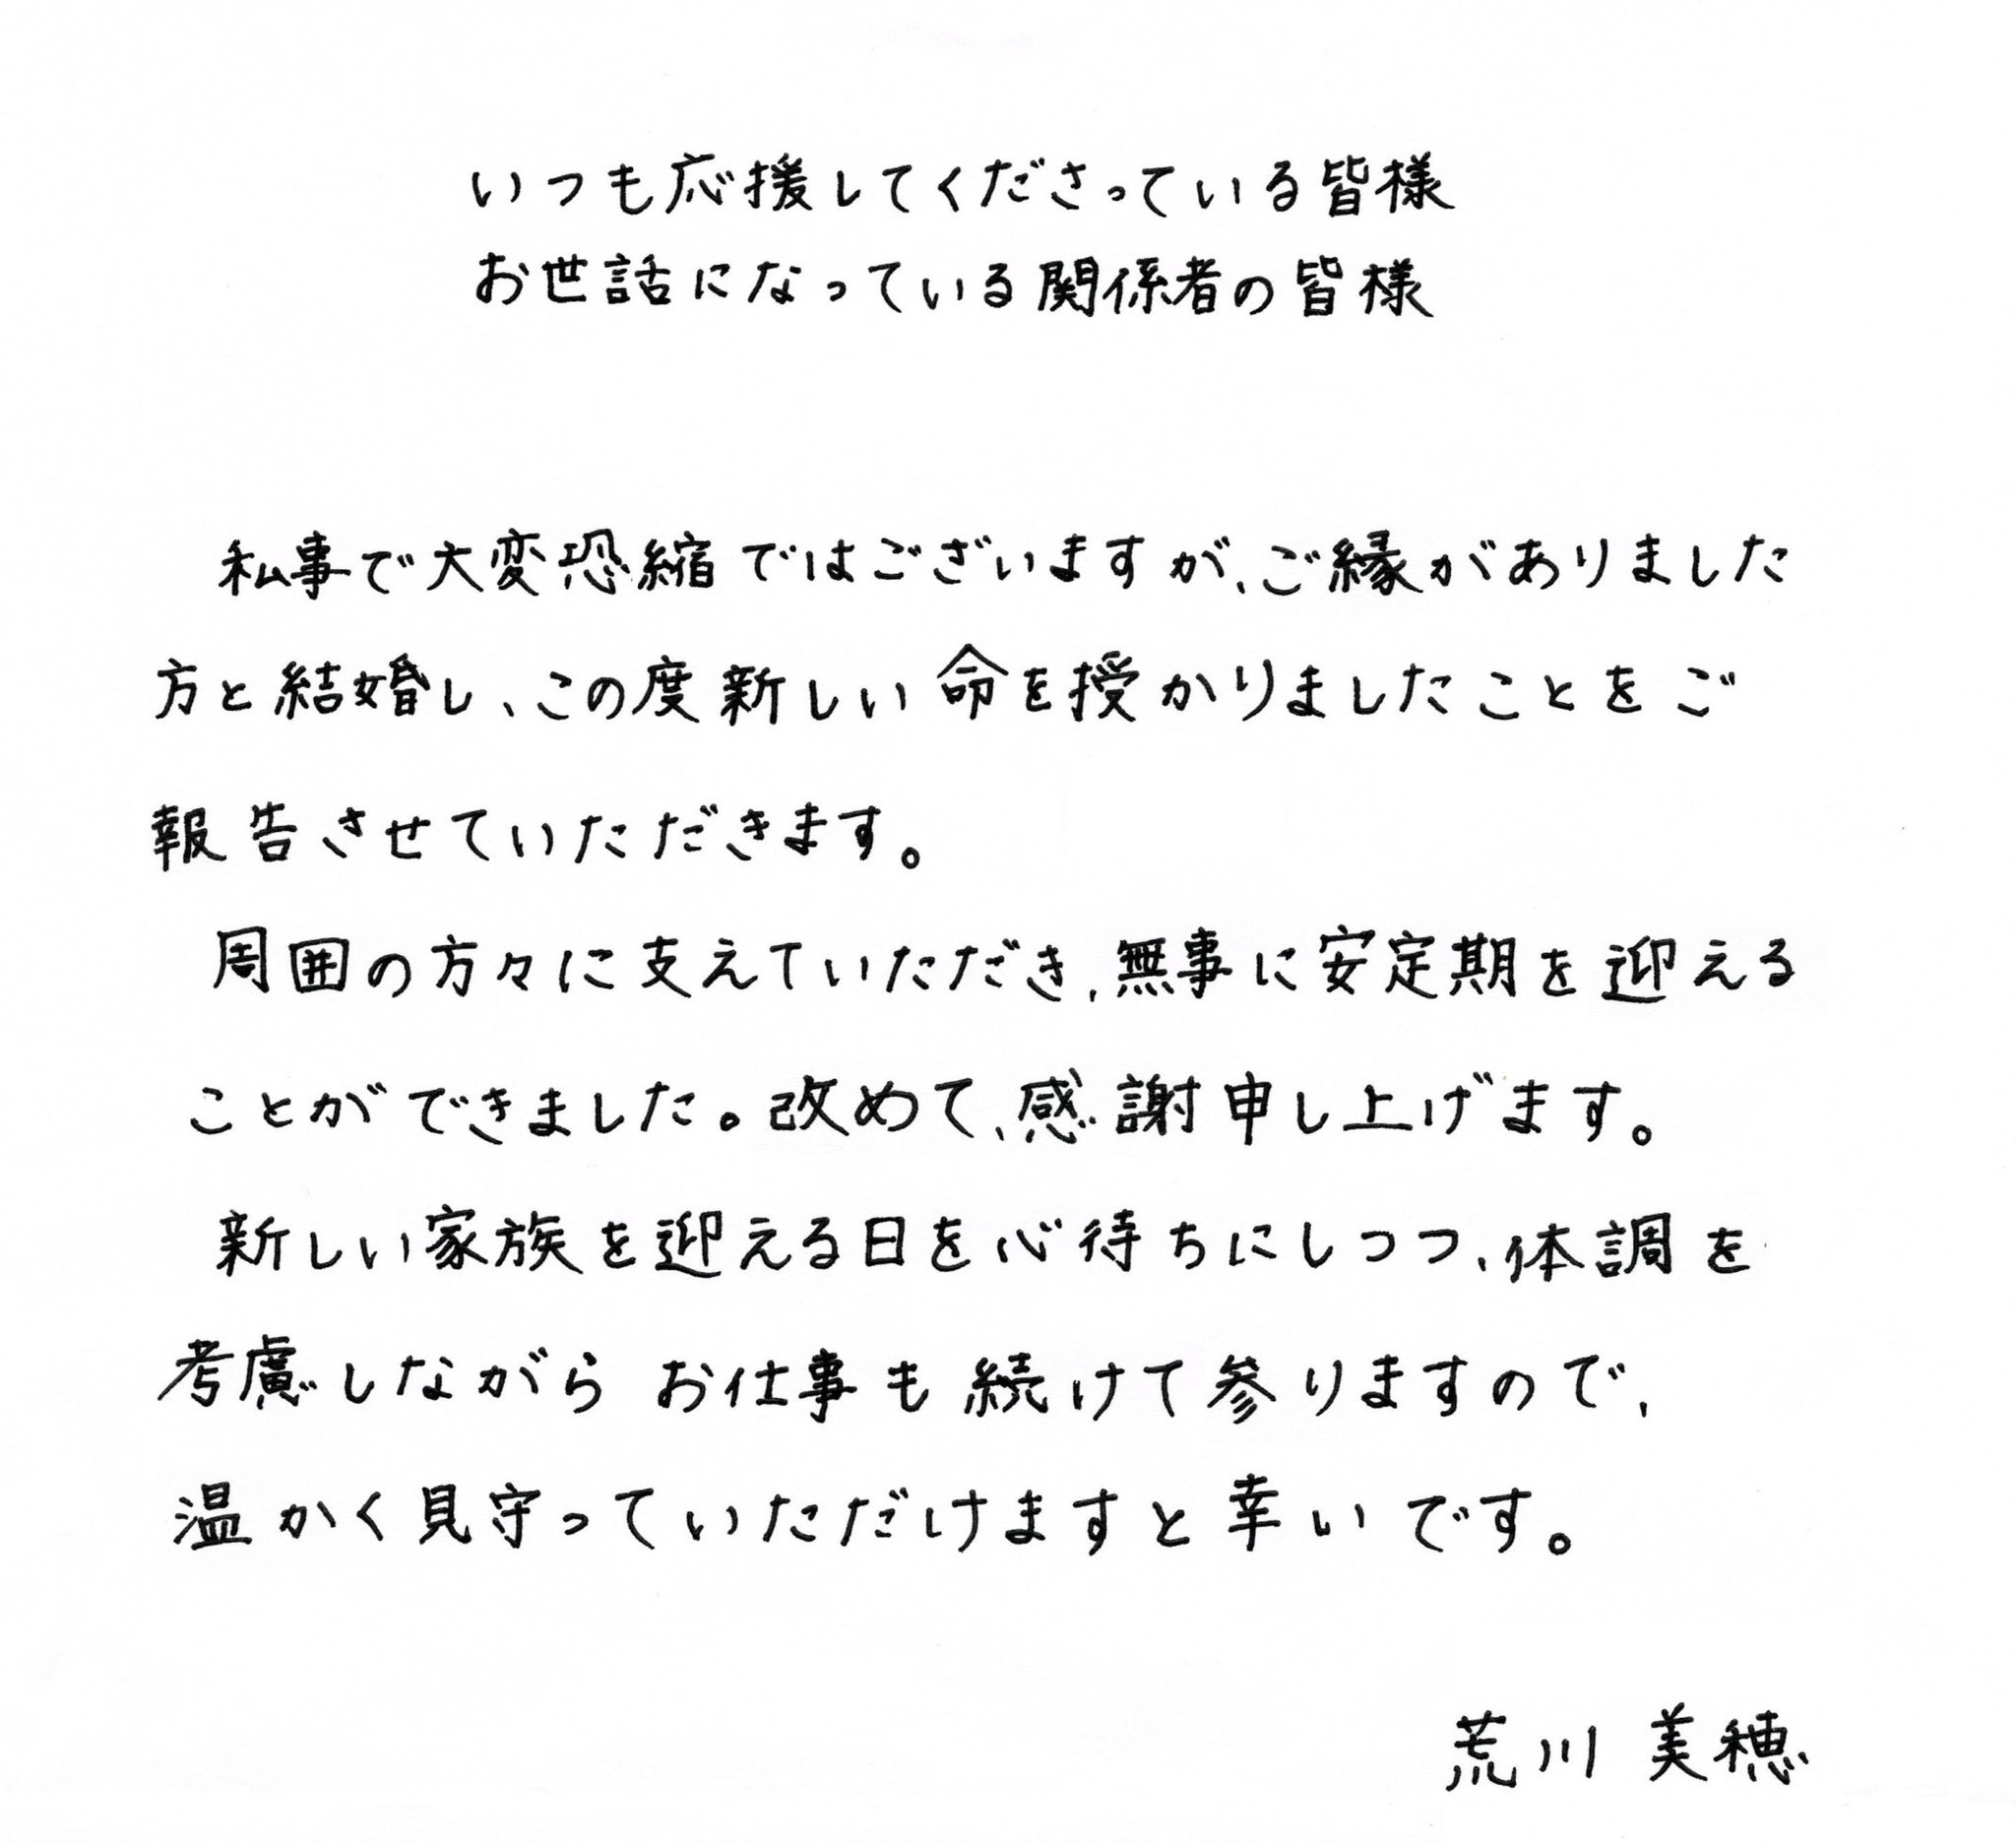 いつも応援してくださっている皆様
お世話になっている関係者の皆様
私事で大変恐縮ではございますが、ご縁がありました
方と結婚し、この度新しい命を授かりましたことをご
報告させていただきます。
周囲の方々に支えていただき、無事に安定期を迎える
ことができました。改めて、感謝申し上げます。
新しい家族を迎える日を心待ちにしつつ、体調を
考慮しながらお仕事も続けて参りますので、
温かく見守っていただけますと幸いです。
荒川 美穂